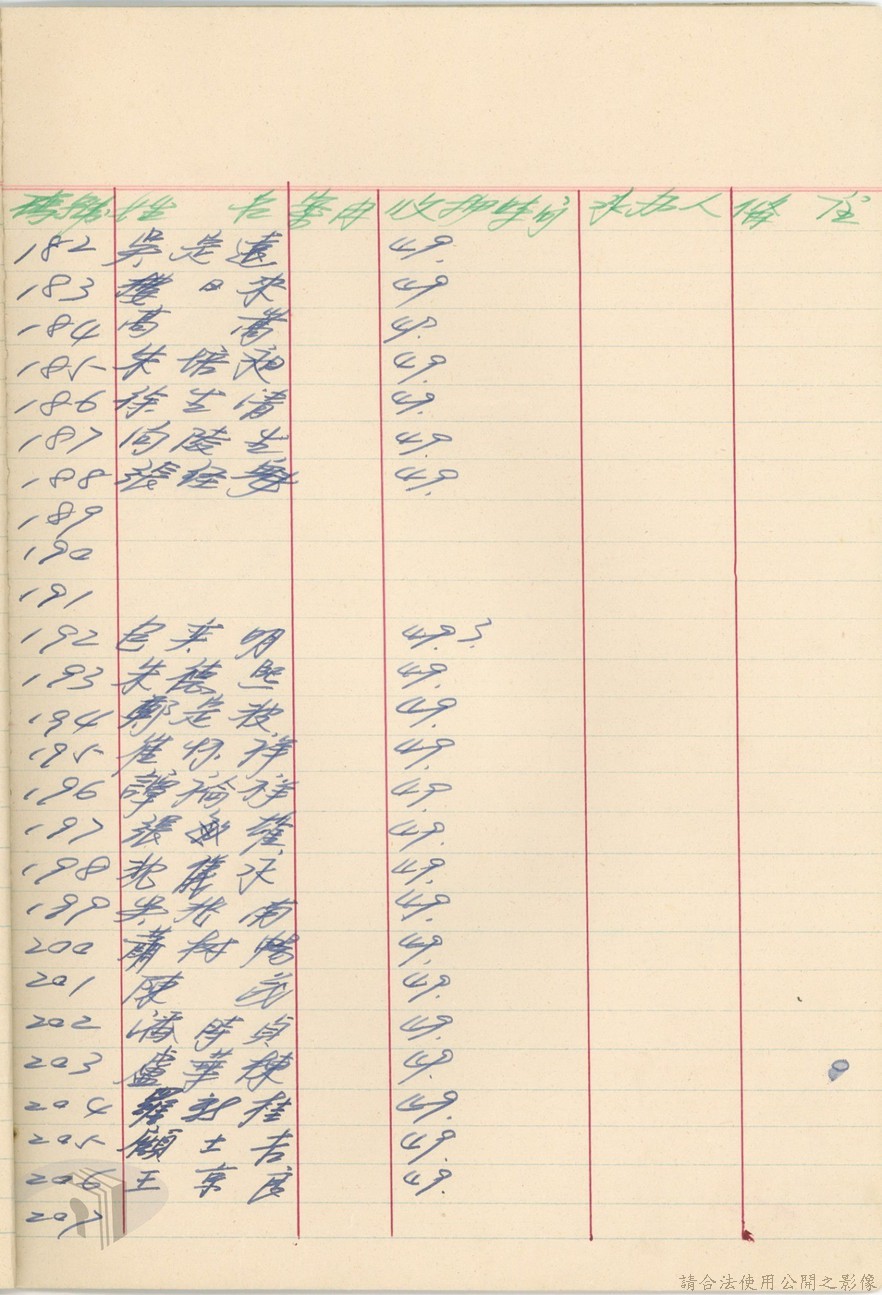 號 姓 名 案由 收押時间 承办人 備 註
182 吳是遠 49.
183 樓日來 49.
184 高 49.
185 朱培 49.
186 徐生清 49.
187 向陵生 49.
188 張經 49.
189
190
191
192 包来明 49.3.
193 朱德熙 49.
194 鄭是 49.
195 崔怀祥 49.
196 譚福祥 49.
197 張 49.
198 沈 49.
199 吳 南 49.
200 蕭树 49.
201 陳 49.
202 潘時貞 49.
203 盧華棟 49.
204 羅新桂 49.
205 顧士吉 49.
206 王京良 49.
207
請合法使用公開之影像